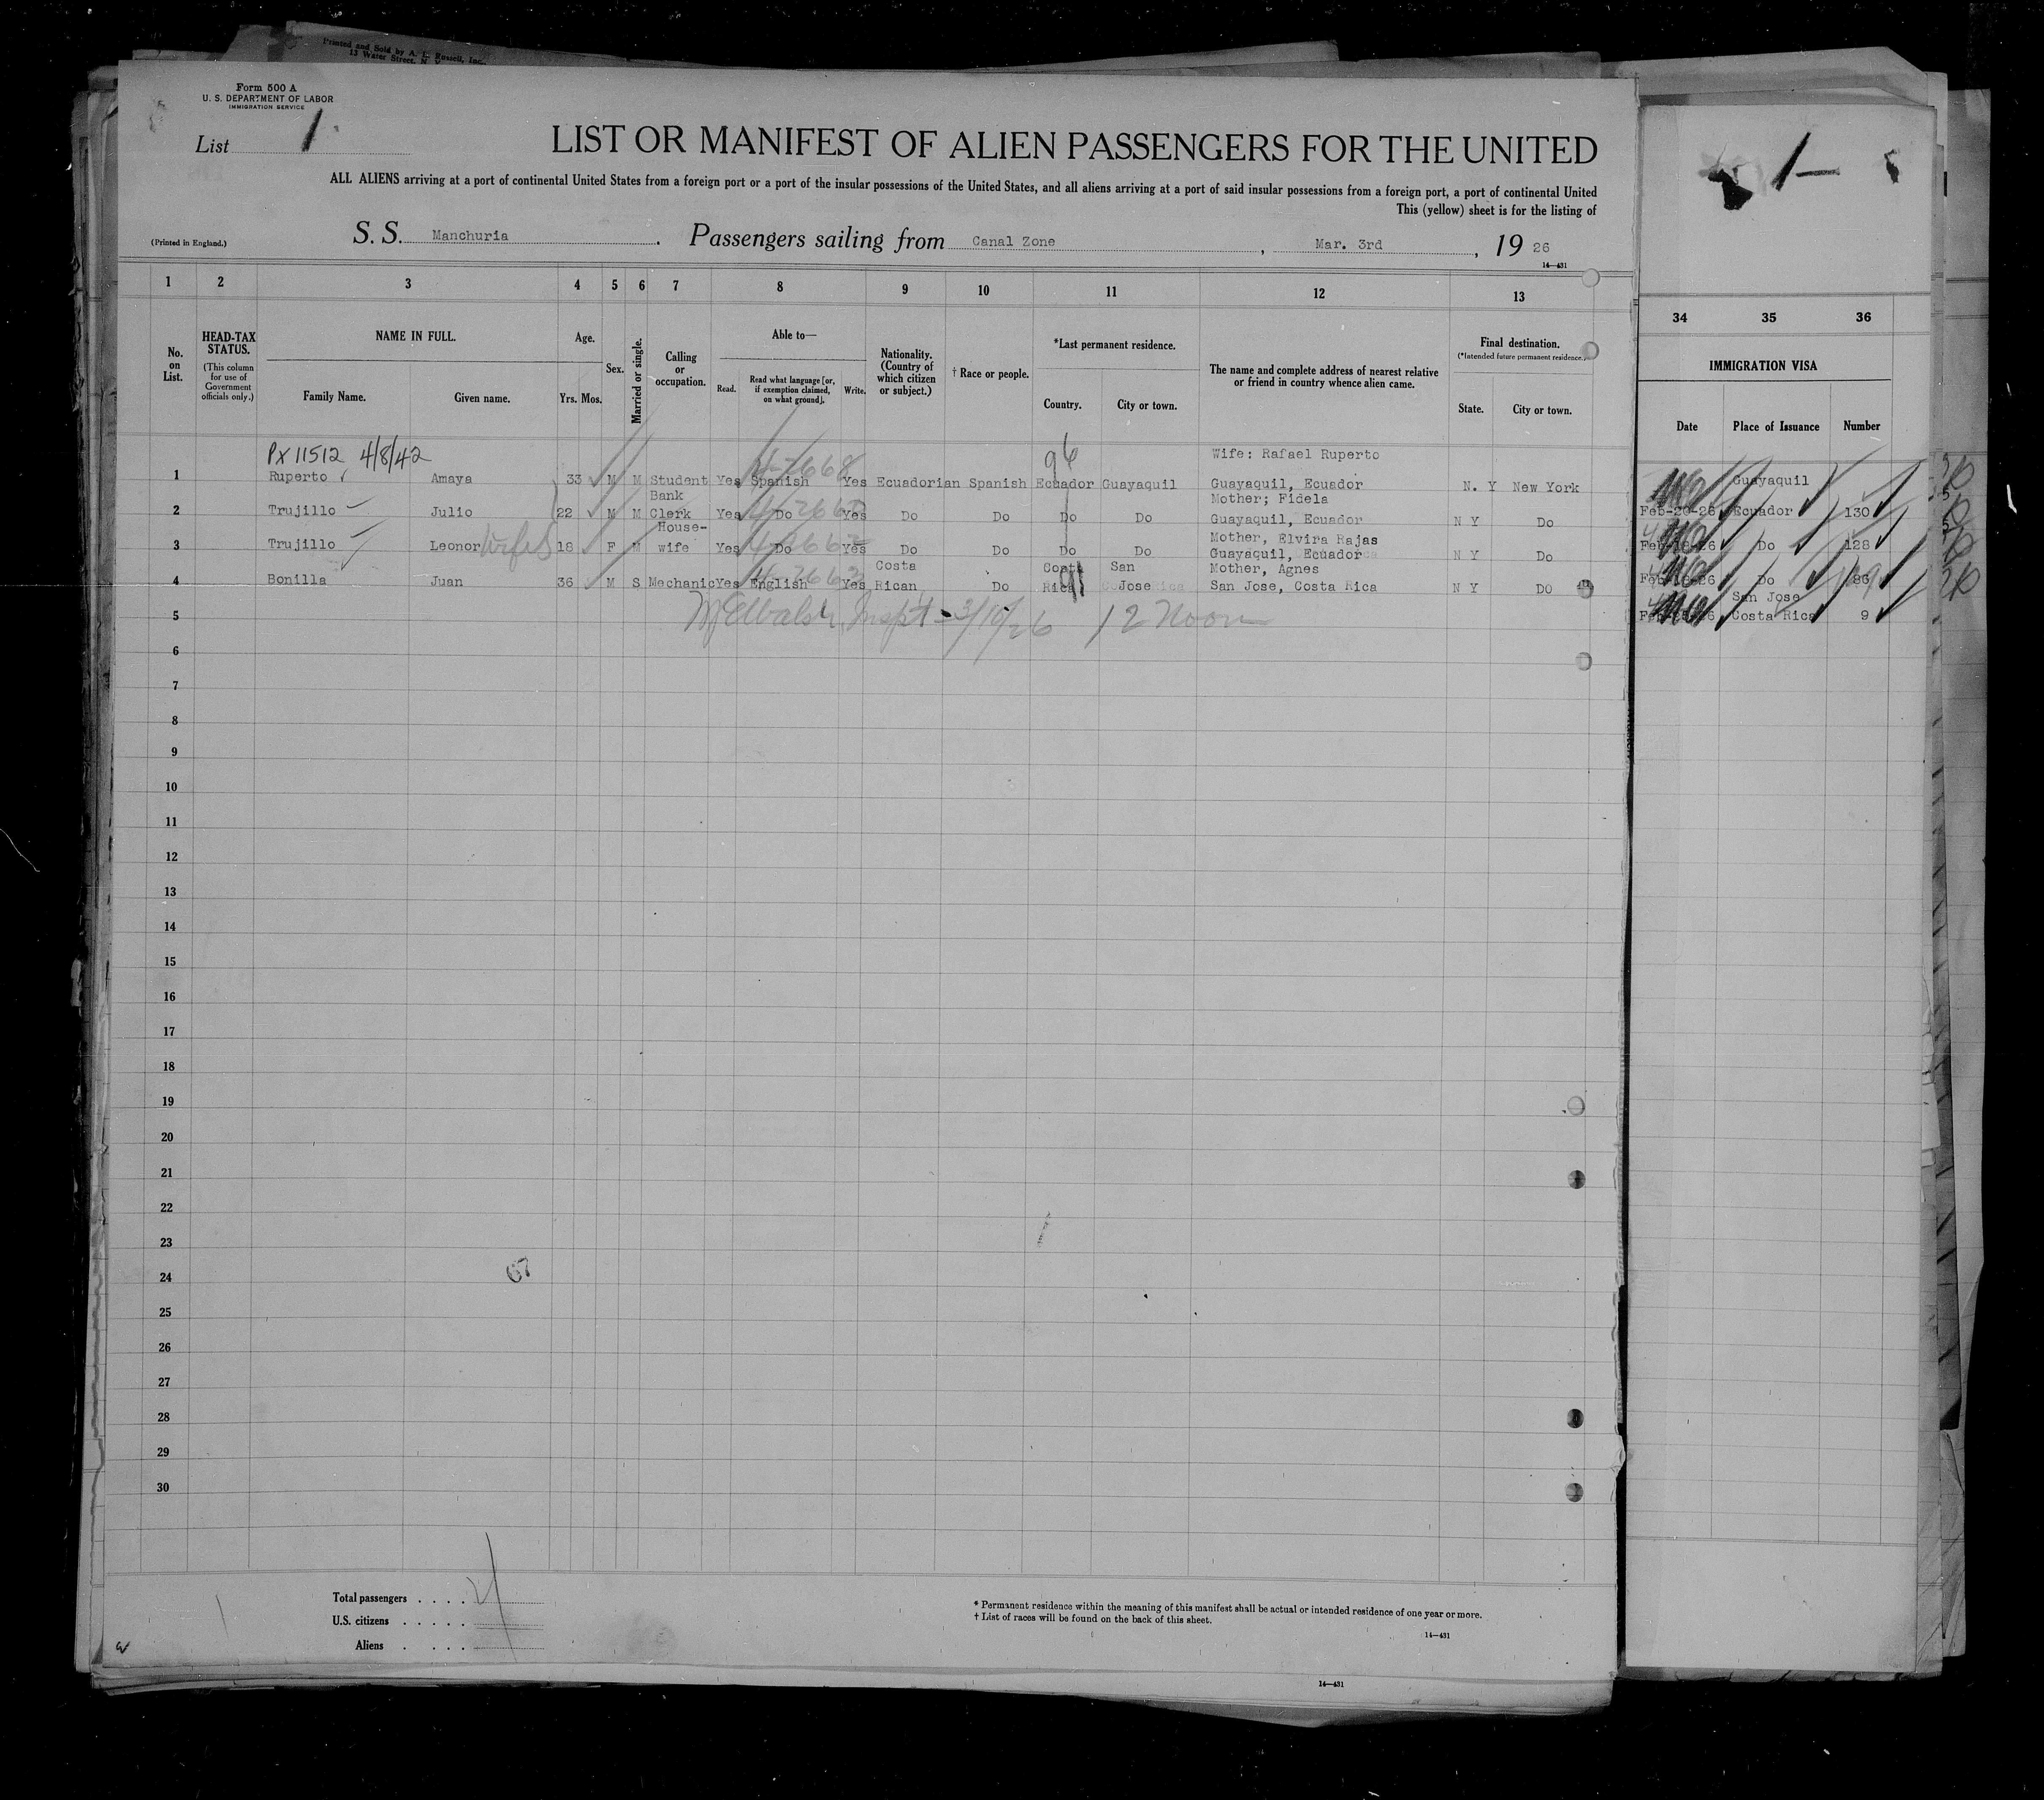 Printed and Sold by A. L. Russell, Inc.
12 Water Street, N. Y.
Form 500 A
U. S. DEPARTMENT OF LABOR
IMMIGRATION SERVICE
List 1
LIST OR MANIFEST OF ALIEN PASSENGERS FOR THE UNITED
1-
ALL ALIENS arriving at a port of continental United States from a foreign port or a port of the insular possessions of the United States, and all aliens arriving at a port of said insular possessions from a foreign port, a port of continental United
This (yellow) sheet is for the listing of
(Printed in England.)
S. S. Manchuria. Passengers sailing from Canal Zone, Mar. 3rd, 19 26
14—431
1 2 3 4 5 6 7 8 9 10 11 12 13 34 35 36
No. on List.
HEAD-TAX STATUS.
(This column for use of Government officials only.)
NAME IN FULL.
Family Name. Given name.
Age.
Yrs. Mos.
Sex.
Married or single.
Calling or occupation.
Able to—
Read. Read what language [or, if exemption claimed, on what ground]. Write.
Nationality. (Country of which citizen or subject.)
† Race or people.
*Last permanent residence.
Country. City or town.
The name and complete address of nearest relative or friend in country whence alien came.
Final destination.
(*Intended future permanent residence.)
State. City or town.
IMMIGRATION VISA
Date Place of Issuance Number
PX 11512 4/8/42
96
Wife: Rafael Ruperto
1 Ruperto Amaya 33 M M Student Yes Spanish Yes Ecuadorian Spanish Ecuador Guayaquil Guayaquil, Ecuador N. Y New York
Guayaquil
Bank Mother; Fidela
2 Trujillo Julio 22 M M Clerk Yes Do Yes Do Do Do Do Guayaquil, Ecuador N Y Do
Feb-20-26 Ecuador 130
House- Mother, Elvira Rajas
3 Trujillo Leonor wife 18 F M wife Yes Do Yes Do Do Do Do Guayaquil, Ecuador N Y Do
Feb-18-26 Do 128
Costa Costa San Mother, Agnes
4 Bonilla Juan 36 M S Mechanic Yes English Yes Rican Do Rica Jose San Jose, Costa Rica N Y DO
Feb-18-26 Do 86
San Jose
5 Walsh Inspt - 3/10/26 12 Noon
Costa Rica 9
6
7
8
9
10
11
12
13
14
15
16
17
18
19
20
21
22
23
24
67
25
26
27
28
29
30
Total passengers . . . . 4
U.S. citizens . . . . .
Aliens . . . .
* Permanent residence within the meaning of this manifest shall be actual or intended residence of one year or more.
† List of races will be found on the back of this sheet.
14—431
14—431